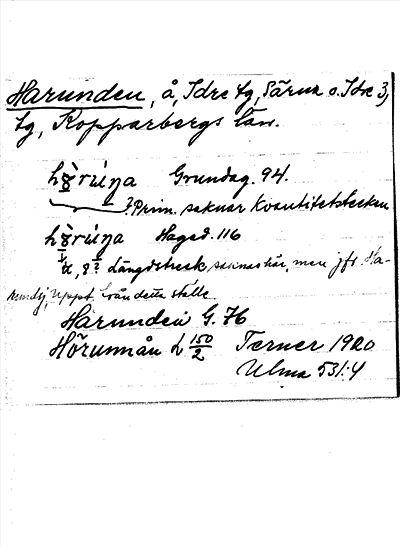 Harunden, å, Idre tg, Särna o. Idre 3,
tg, Kopparbergs län.
Grundag. 94.
Prim. saknar kvantitetstecken
Haged. 116
Längdstreck saknas här, men jfr. Ha-
rundsj. Uppt. från detta ställe.
Harunden G. 76
Hörunnån L 150/2 Terner 1920
Ulma 531:4